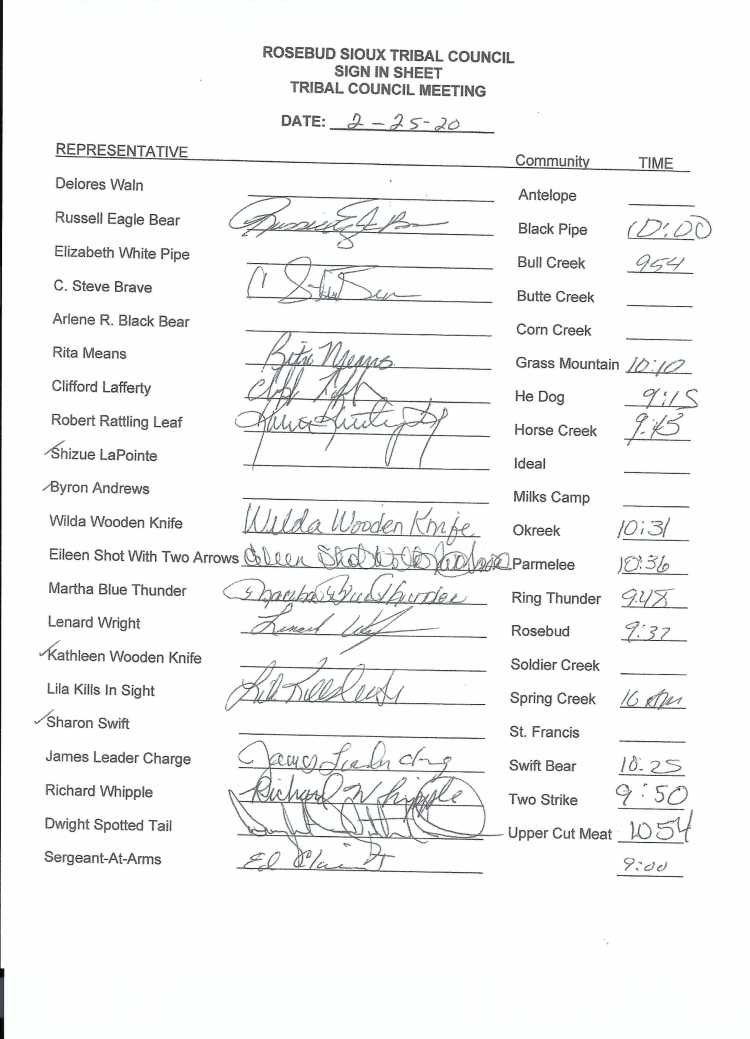 ROSEBUD SIOUX TRIBAL COUNCIL
SIGN IN SHEET
TRIBAL COUNCIL MEETING
DATE: 2-25-20
REPRESENTATIVE Community TIME
Delores Waln Antelope
Russell Eagle Bear Black Pipe 10:00
Elizabeth White Pipe Bull Creek 954
C. Steve Brave Butte Creek
Arlene R. Black Bear Corn Creek
Rita Means Rita Means Grass Mountain 10:10
Clifford Lafferty He Dog 9:15
Robert Rattling Leaf Horse Creek 9:43
Shizue LaPointe Ideal
Byron Andrews Milks Camp
Wilda Wooden Knife Wilda Wooden Knife Okreek 10:31
Eileen Shot With Two Arrows Eileen Shot Parmelee 10:36
Martha Blue Thunder Ring Thunder 948
Lenard Wright Lenard Rosebud 9:37
Kathleen Wooden Knife Soldier Creek
Lila Kills In Sight Spring Creek
Sharon Swift St. Francis
James Leader Charge James Swift Bear 10:25
Richard Whipple Richard Whipple Two Strike 9:50
Dwight Spotted Tail Upper Cut Meat 1054
Sergeant-At-Arms Ed 9:00